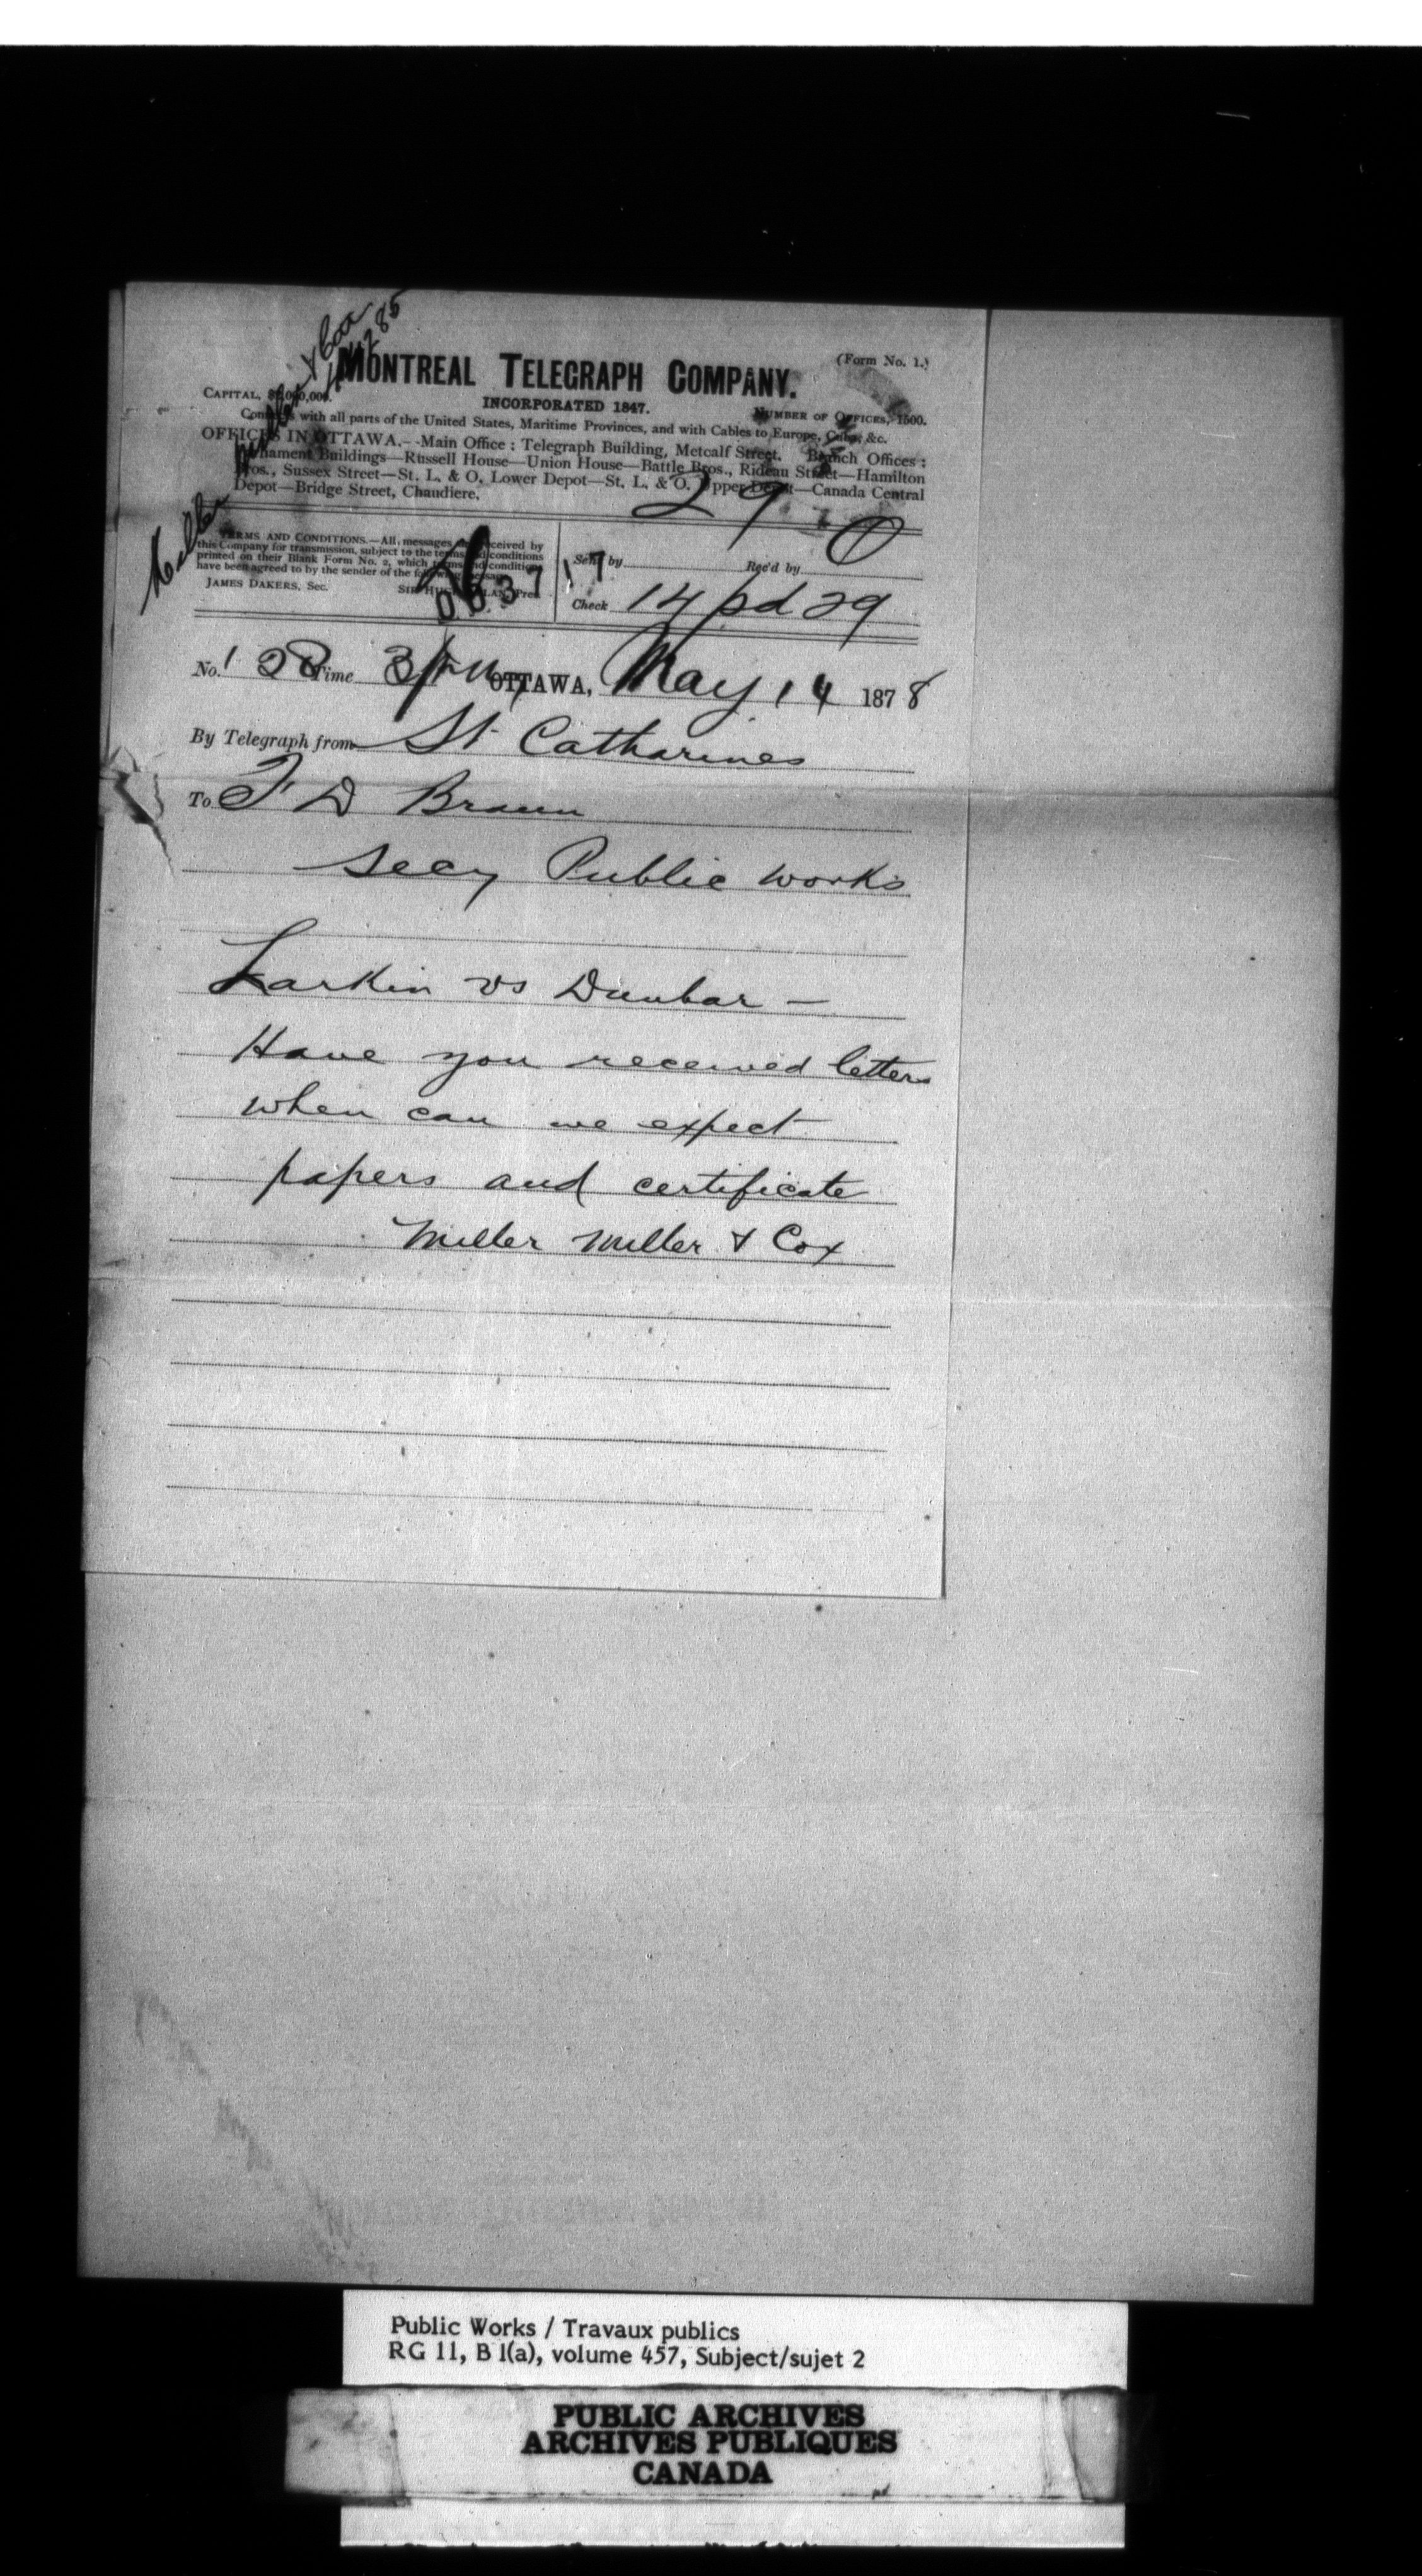 Miller Miller & Cox
(Form No. 1.)
MONTREAL TELEGRAPH COMPANY.
CAPITAL, $2,000,000.
INCORPORATED 1847.
NUMBER OF OFFICES, 1500.
Connects with all parts of the United States, Maritime Provinces, and with Cables to Europe, Cuba, &c.
OFFICES IN OTTAWA.--Main Office: Telegraph Building, Metcalf Street. Branch Offices:
Parliament Buildings—Russell House—Union House—Battle Bros., Rideau Street—Hamilton
Bros., Sussex Street—St. L. & O. Lower Depot—St. L. & O. Upper Depot—Canada Central
Depot—Bridge Street, Chaudiere.
29
TERMS AND CONDITIONS.—All messages are received by
this Company for transmission, subject to the terms and conditions
printed on their Blank Form No. 2, which terms and conditions
have been agreed to by the sender of the following message.
JAMES DAKERS, Sec. SIR HUGH ALLAN, Pres.
Sent by Rec'd by
Check 14 pd 29
No. 128 Time 3 PM OTTAWA, May 14 1878
By Telegraph from St Catharines
To F D Braun
Secy Public Works
Larkin vs Dunbar —
Have you received letters
when can we expect
papers and certificate
Miller Miller & Cox
Public Works / Travaux publics
RG 11, B 1(a), volume 457, Subject/sujet 2
PUBLIC ARCHIVES
ARCHIVES PUBLIQUES
CANADA